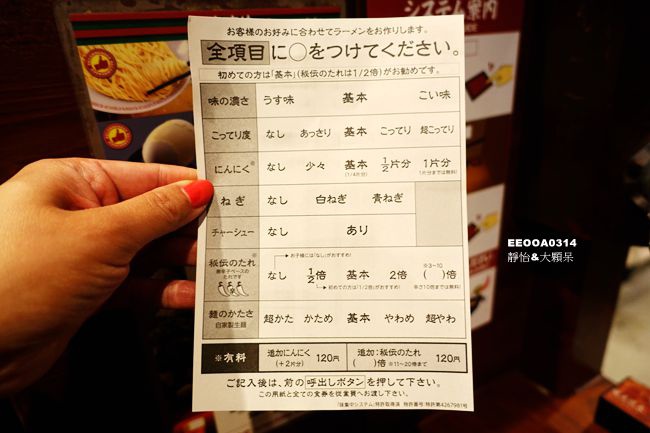 お客様のお好みに合わせてラーメンをお作りします。
全項目に○をつけてください。
初めての方は「基本」(秘伝のたれは1/2倍)がお勧めです。
味の濃さ うす味 基本 こい味
こってり度 なし あっさり 基本 こってり 超こってり
にんにく※ なし 少々 基本 1/2片分 1片分
(1/4片分) (1片分までは無料)
ねぎ なし 白ねぎ 青ねぎ
チャーシュー なし あり
お子様には「なし」がおすすめ!
秘伝のたれ※ なし 1/2倍 基本 2倍 ( )倍
※3~10
唐辛子ベースの
たれです
初めての方は「1/2倍」がおすすめ!
辛さ10倍までは無料!
麺のかたさ 超かた かため 基本 やわめ 超やわ
自家製生麺
※有料 追加にんにく 120円 追加:秘伝のたれ 120円
(+2片分) ( )倍 ※11~20倍まで
ご記入後は、前の呼出しボタンを押して下さい。
この用紙と全ての食券を従業員へお渡し下さい。
「味集中システム」特許取得済 特許番号:特許第4267981号
システム案内
EEOOA0314
靜怡&大顆呆